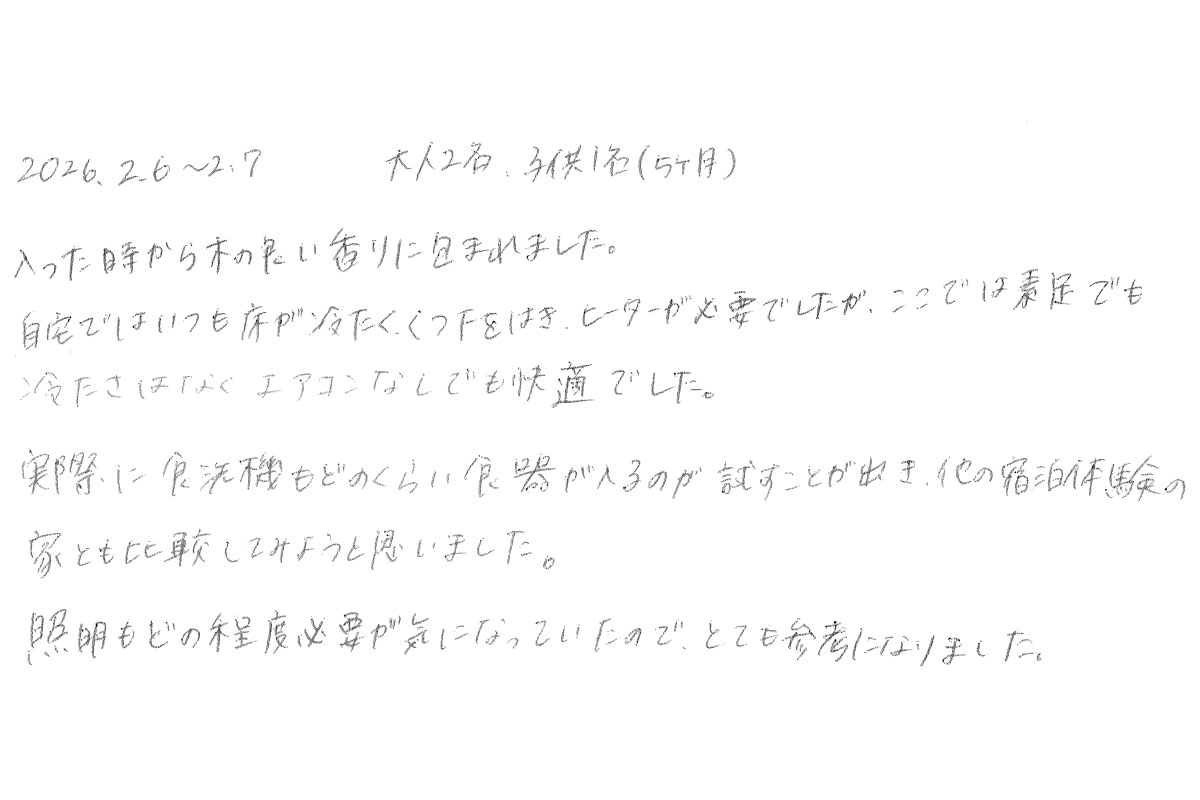 2026. 2.6～2.7 大人2名、子供1名(5ヶ月)
入った時から木の良い香りに包まれました。
自宅ではいつも床が冷たく、くつ下をはき、ヒーターが必要でしたが、ここでは素足でも
冷たさはなくエアコンなしでも快適でした。
実際に食洗機もどのくらい食器が入るのか試すことが出き、他の宿泊体験の
家とも比較してみようと思いました。
照明もどの程度必要か気になっていたので、とても参考になりました。